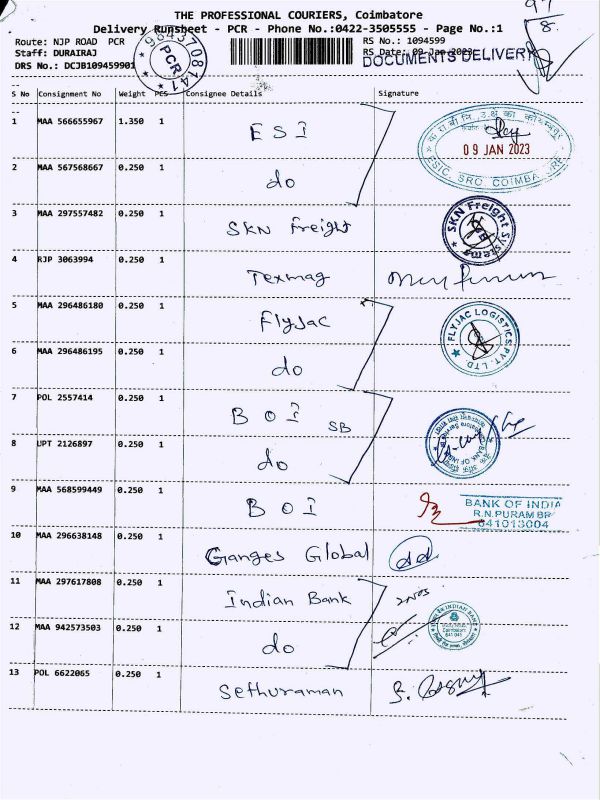 THE PROFESSIONAL COURIERS, Coimbatore
Delivery Runsheet - PCR - Phone No.:0422-3505555 - Page No.:1
Route: NJP ROAD PCR
RS No.: 1094599
Staff: DURAIRAJ
RS Date: 09-Jan-2023
DRS No.: DCJB109459901
DOCUMENTS DELIVERY
9843708141
PCR
97/8
S No Consignment No Weight PCS Consignee Details Signature
1 MAA 566655967 1.350 1 ESI
09 JAN 2023
ESIC, SRO COIMBA RE
2 MAA 567568667 0.250 1 do
3 MAA 297557482 0.250 1 SKN Freight
SKN Freight Systems
4 RJP 3063994 0.250 1 Texmag
5 MAA 296486180 0.250 1 Flyjac
FLYJAC LOGISTICS PVT. LTD.
6 MAA 296486195 0.250 1 do
7 POL 2557414 0.250 1 BOI SB
BANK OF INDIA
8 UPT 2126897 0.250 1 do
9 MAA 568599449 0.250 1 BOI
BANK OF INDIA
R.N.PURAM BR
641013004
10 MAA 296638148 0.250 1 Ganges Global
11 MAA 297617808 0.250 1 Indian Bank
INDIAN BANK
12 MAA 942573503 0.250 1 do
13 POL 6622065 0.250 1 Sethuraman